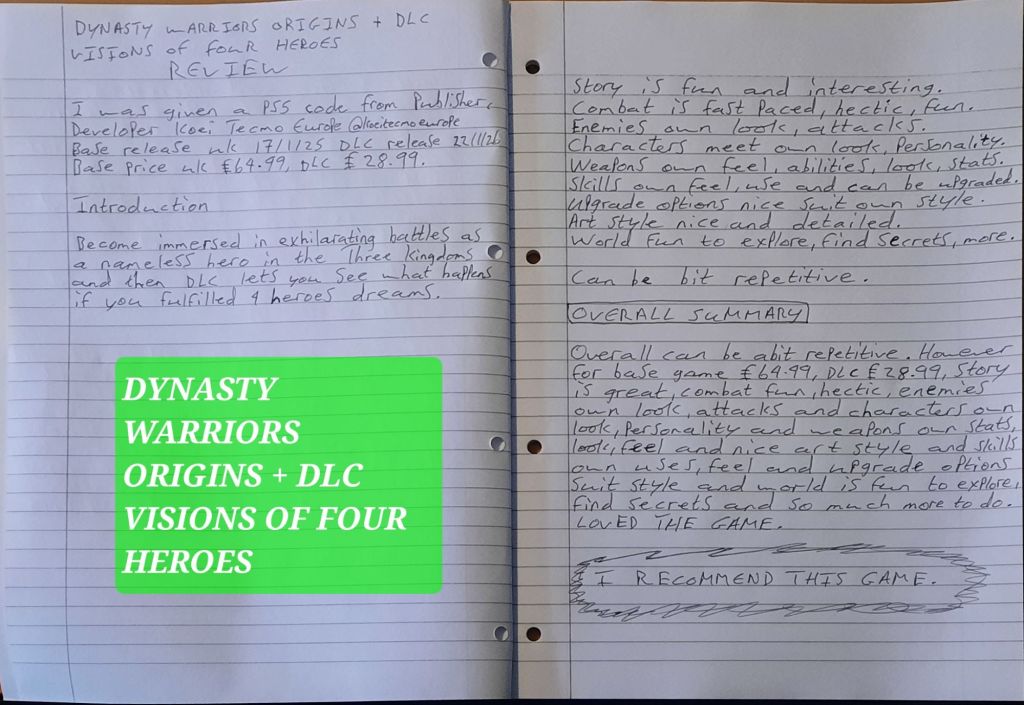 DYNASTY WARRIORS ORIGINS + DLC
VISIONS OF FOUR HEROES
REVIEW
I was given a PS5 code from Publisher,
Developer Koei Tecmo Europe @koeitecmoeurope
Base release uk 17/1/25 DLC release 22/1/26
Base Price uk £64.99, DLC £28.99.
Introduction
Become immersed in exhilarating battles as
a nameless hero in the Three Kingdoms
and then DLC lets you see what happens
if you fulfilled 4 heroes dreams.
DYNASTY
WARRIORS
ORIGINS + DLC
VISIONS OF FOUR
HEROES
Story is fun and interesting.
Combat is fast Paced, hectic, fun.
Enemies own look, attacks.
Characters meet own look, Personality.
Weapons own feel, abilities, look, stats.
Skills own feel, use and can be upgraded.
Upgrade options nice suit own style.
Art style nice and detailed.
World fun to explore, find secrets, more.
Can be bit repetitive.
OVERALL SUMMARY
Overall can be abit repetitive. However
for base game £64.99, DLC £28.99, Story
is great, combat fun, hectic, enemies
own look, attacks and characters own
look, Personality and weapons own stats,
look, feel and nice art style and skills
own uses, feel and upgrade options
suit style and world is fun to explore,
find secrets and so much more to do.
LOVED THE GAME.
I RECOMMEND THIS GAME.